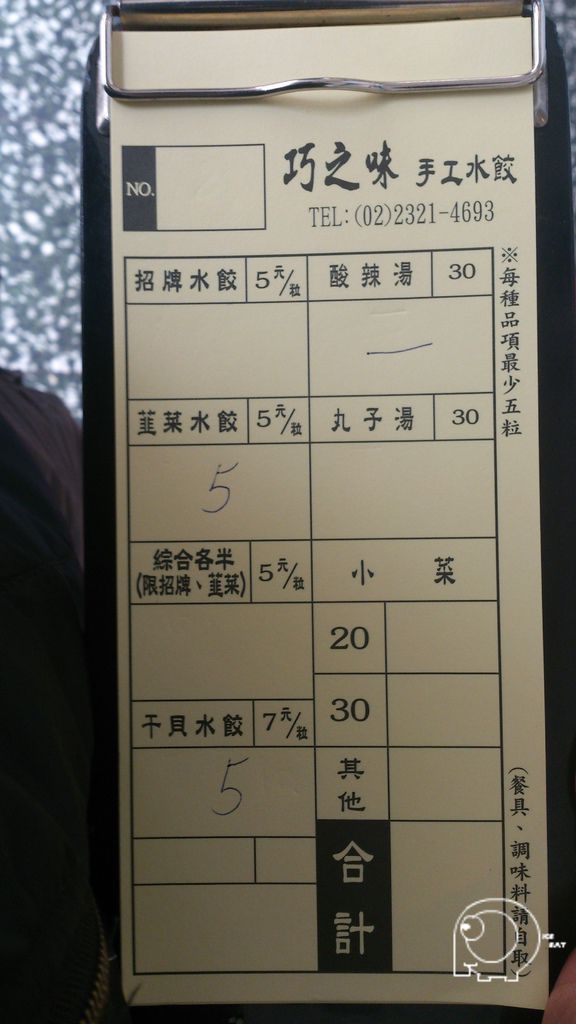 NO.
巧之味 手工水餃
TEL:(02)2321-4693
招牌水餃 5元/粒 酸辣湯 30
一
韮菜水餃 5元/粒 丸子湯 30
5
綜合各半
(限招牌、韮菜) 5元/粒 小菜
20
30
干貝水餃 7元/粒
5
其他
合計
※每種品項最少五粒
(餐具、調味料請自取)
ICE
EAT